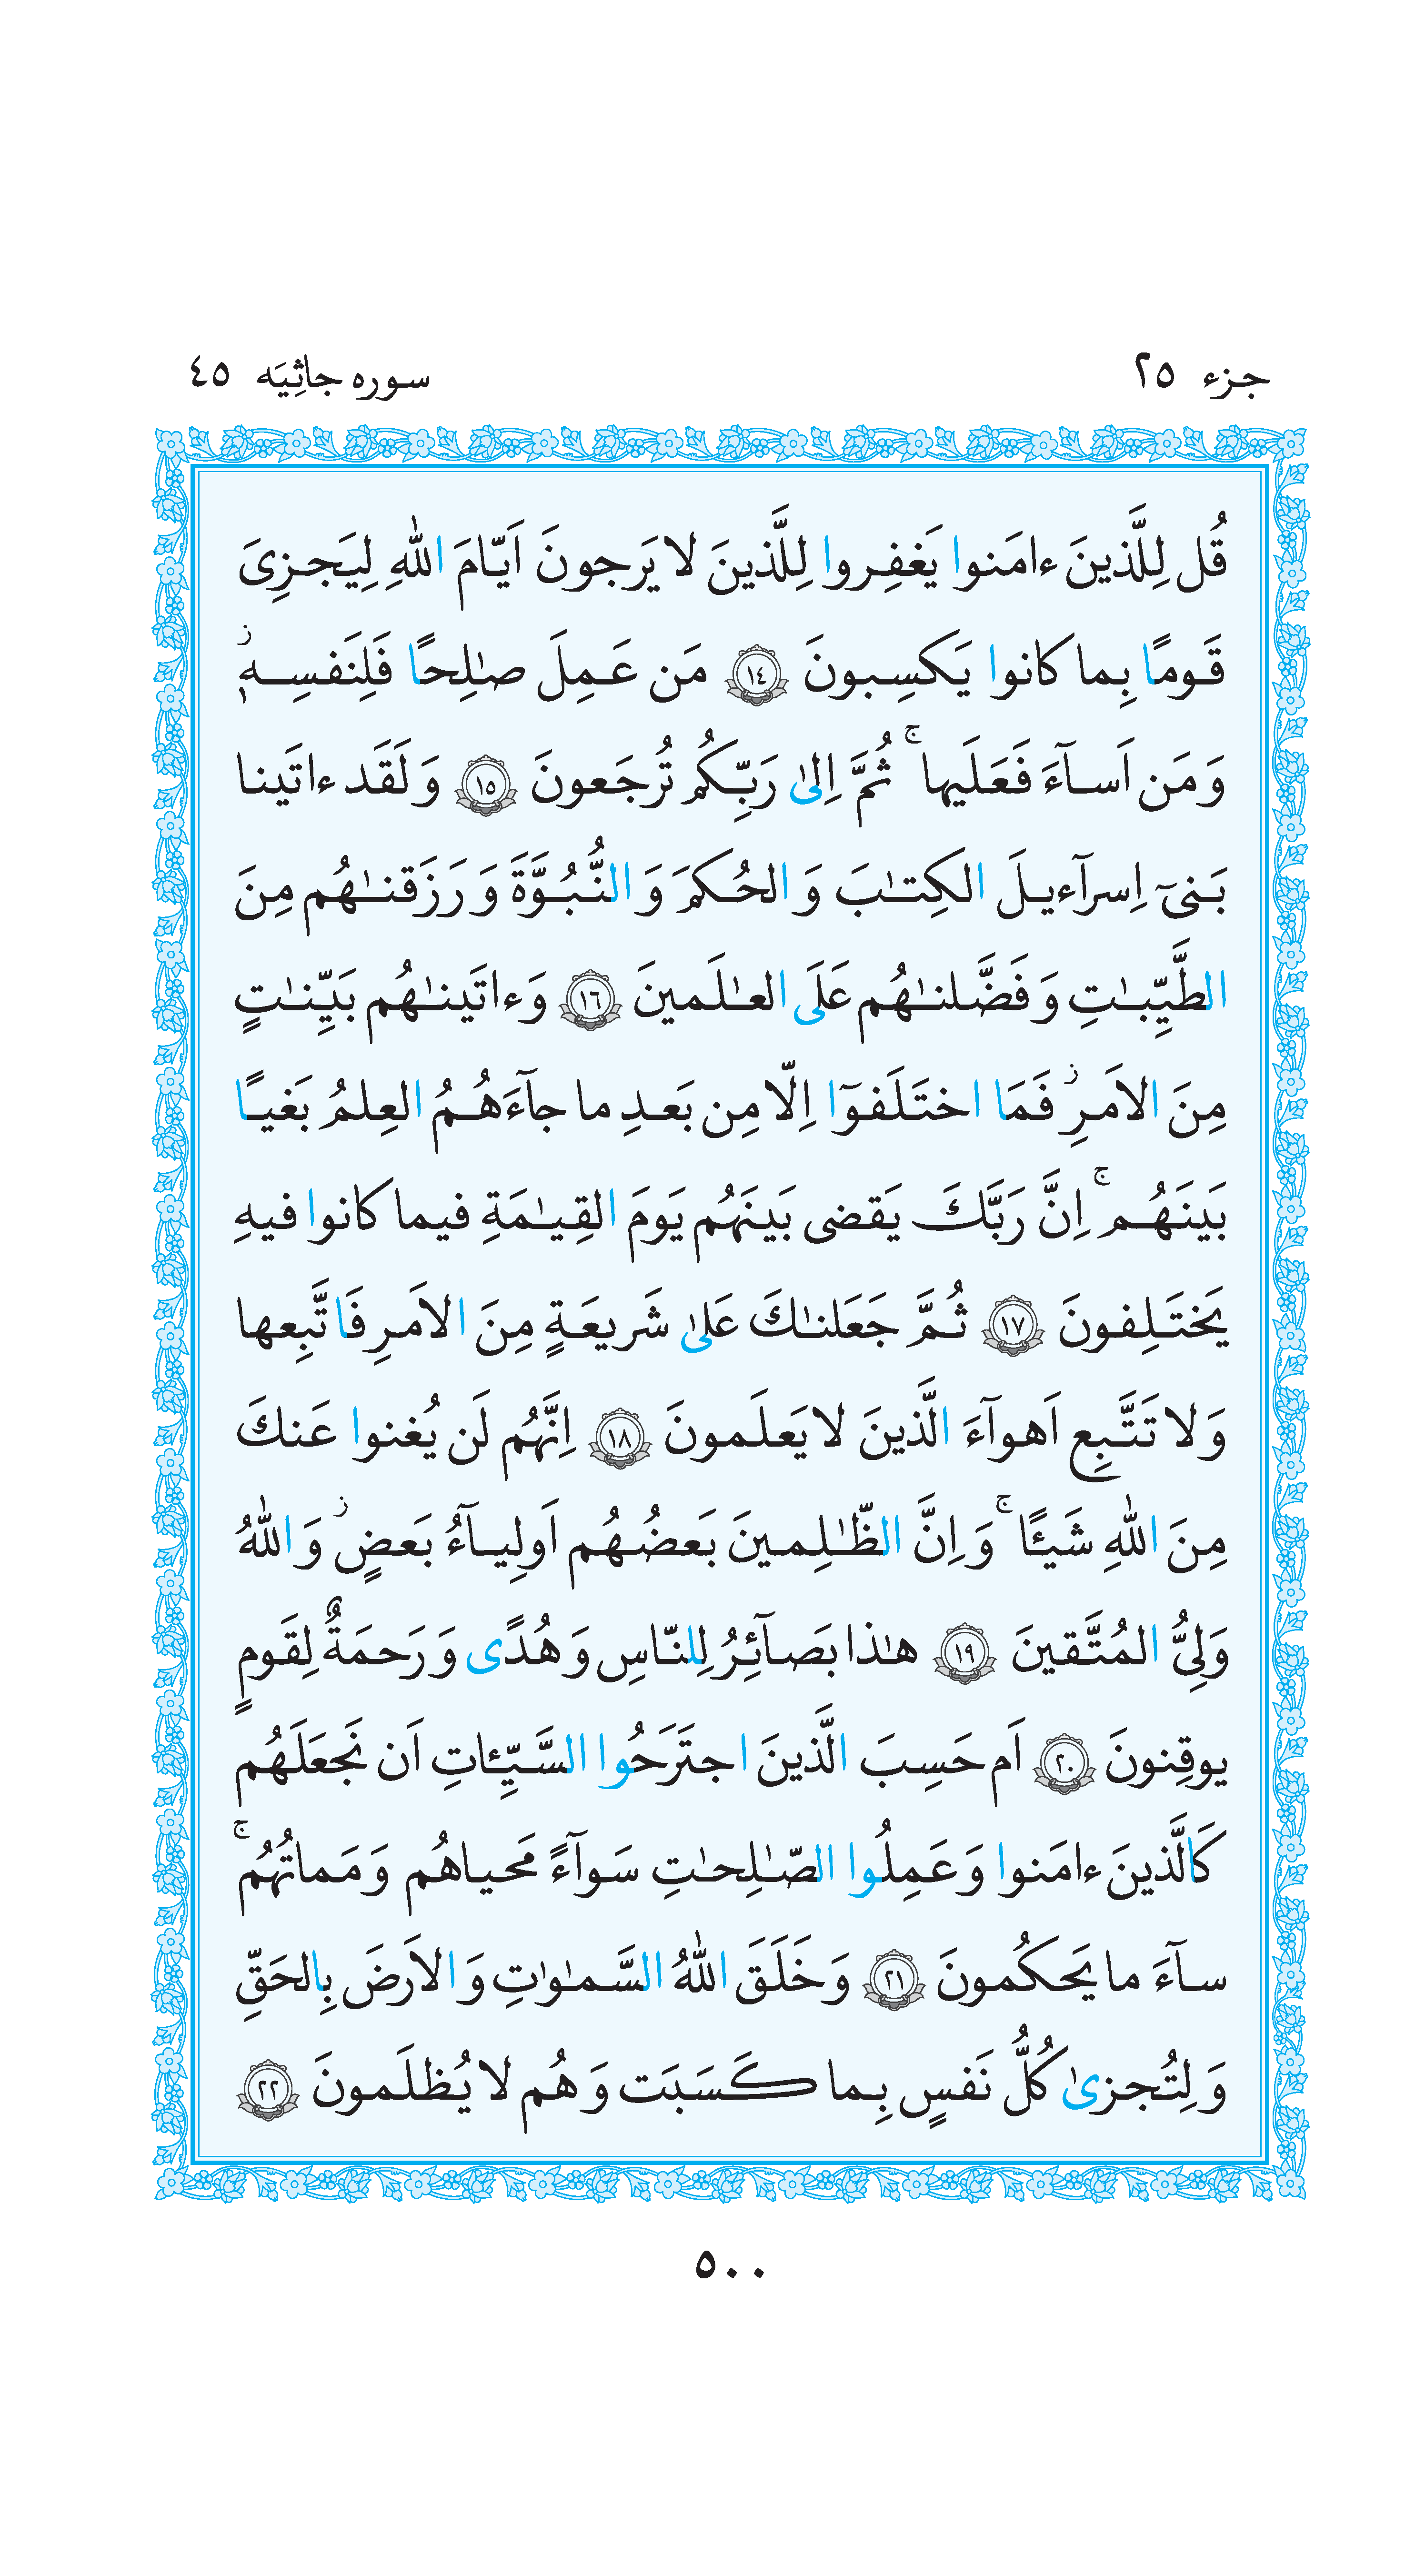 جزء ٢٥
سوره جاثِيَه ٤٥
قُل لِلَّذينَ ءامَنوا يَغفِروا لِلَّذينَ لا يَرجونَ اَيّامَ اللّٰهِ لِيَجزِىَ
قَومًا بِما كانوا يَكسِبونَ ١٤ مَن عَمِلَ صٰلِحًا فَلِنَفسِهٖ ز
وَ مَن اَسآءَ فَعَلَيها ج ثُمَّ اِلىٰ رَبِّكُم تُرجَعونَ ١٥ وَ لَقَد ءاتَينا
بَنىٓ اِسرآءيلَ الكِتٰبَ وَ الحُكمَ وَ النُّبُوَّةَ وَ رَزَقنٰهُم مِنَ
الطَّيِّبٰتِ وَ فَضَّلنٰهُم عَلَى العٰلَمينَ ١٦ وَ ءاتَينٰهُم بَيِّنٰتٍ
مِنَ الاَمرِ ز فَمَا اختَلَفوٓا اِلّا مِن بَعدِ ما جآءَهُمُ العِلمُ بَغيًا
بَينَهُم ج اِنَّ رَبَّكَ يَقضى بَينَهُم يَومَ القِيٰمَةِ فيما كانوا فيهِ
يَختَلِفونَ ١٧ ثُمَّ جَعَلنٰكَ عَلىٰ شَريعَةٍ مِنَ الاَمرِ فَاتَّبِعها
وَ لا تَتَّبِع اَهوآءَ الَّذينَ لا يَعلَمونَ ١٨ اِنَّهُم لَن يُغنوا عَنكَ
مِنَ اللّٰهِ شَيـًٔا ج وَ اِنَّ الظّٰلِمينَ بَعضُهُم اَولِيآءُ بَعضٍ ز وَ اللّٰهُ
وَلِىُّ المُتَّقينَ ١٩ هٰذا بَصآئِرُ لِلنّاسِ وَ هُدًى وَ رَحمَةٌ لِقَومٍ
يوقِنونَ ٢٠ اَم حَسِبَ الَّذينَ اجتَرَحُوا السَّيِّـٔاتِ اَن نَجعَلَهُم
كَالَّذينَ ءامَنوا وَ عَمِلُوا الصّٰلِحٰتِ سَوآءً مَحياهُم وَ مَماتُهُم ج
سآءَ ما يَحكُمونَ ٢١ وَ خَلَقَ اللّٰهُ السَّمٰوٰتِ وَ الاَرضَ بِالحَقِّ
وَ لِتُجزىٰ كُلُّ نَفسٍ بِما كَسَبَت وَ هُم لا يُظلَمونَ ٢٢
٥٠٠